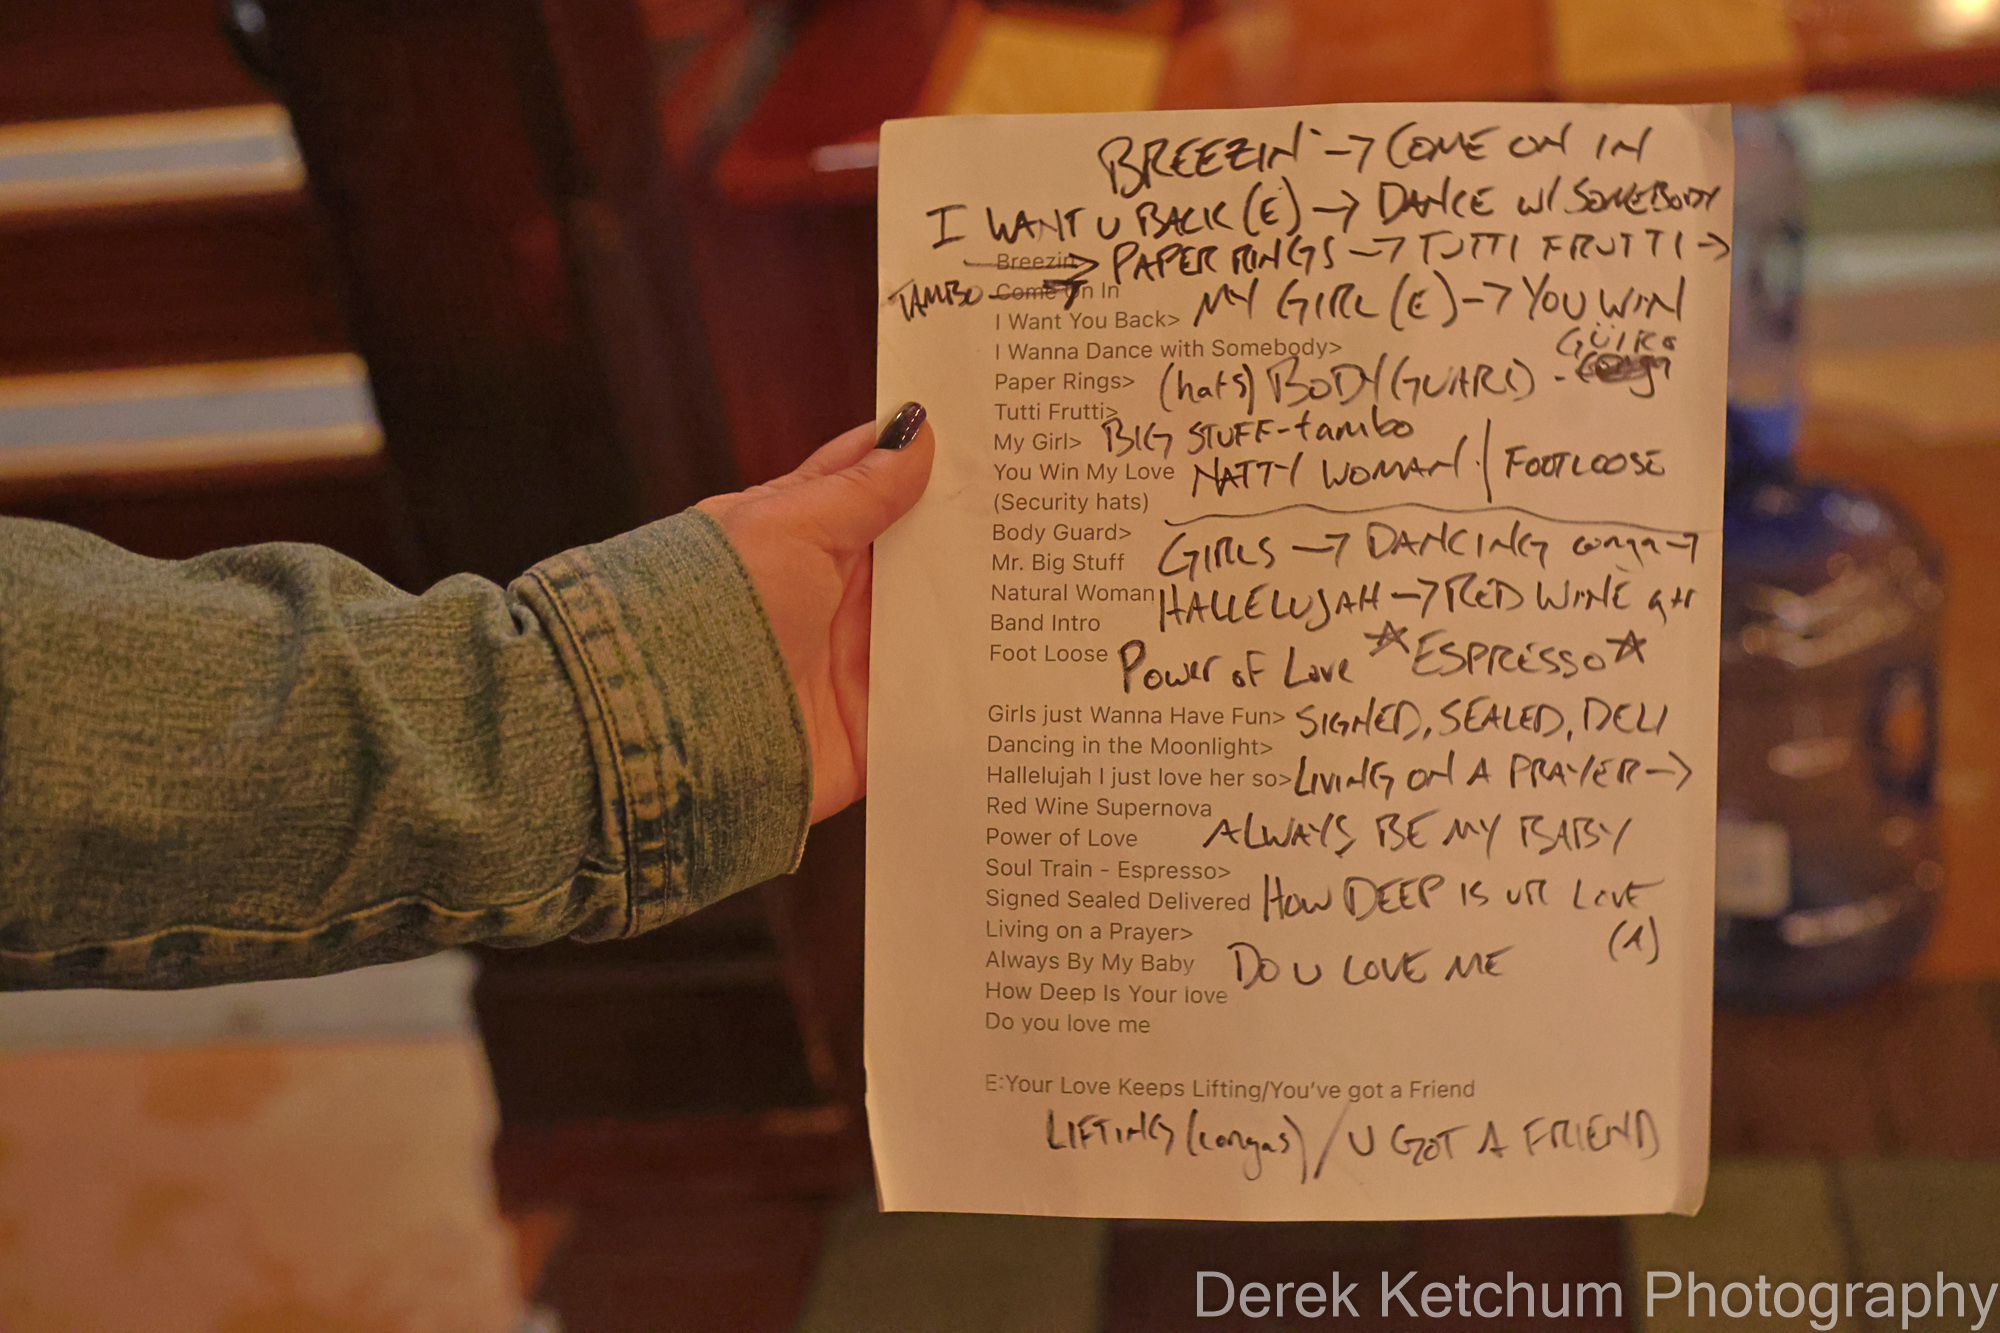 BREEZIN' → COME ON IN
I WANT U BACK (E) → DANCE W/ SOMEBODY
Breezin → PAPER RINGS → TUTTI FRUTTI →
TAMBO Come On In MY GIRL (E) → YOU WIN
I Want You Back>
I Wanna Dance with Somebody> GÜIRO
Paper Rings> (hats) BODY (GUARD) -
Tutti Frutti>
My Girl> BIG STUFF - tambo
You Win My Love NATTY WOMAN / FOOTLOOSE
(Security hats)
Body Guard>
Mr. Big Stuff GIRLS → DANCING conga →
Natural Woman HALLELUJAH → RED WINE gtr
Band Intro
Foot Loose Power of Love ☆ ESPRESSO ☆
Girls just Wanna Have Fun> SIGNED, SEALED, DELI
Dancing in the Moonlight>
Hallelujah I just love her so> LIVING ON A PRAYER →
Red Wine Supernova
Power of Love ALWAYS BE MY BABY
Soul Train - Espresso>
Signed Sealed Delivered HOW DEEP IS UR LOVE
Living on a Prayer> (A)
Always By My Baby DO U LOVE ME
How Deep Is Your love
Do you love me
E:Your Love Keeps Lifting/You've got a Friend
LIFTING (congas) / U GOT A FRIEND
Derek Ketchum Photography